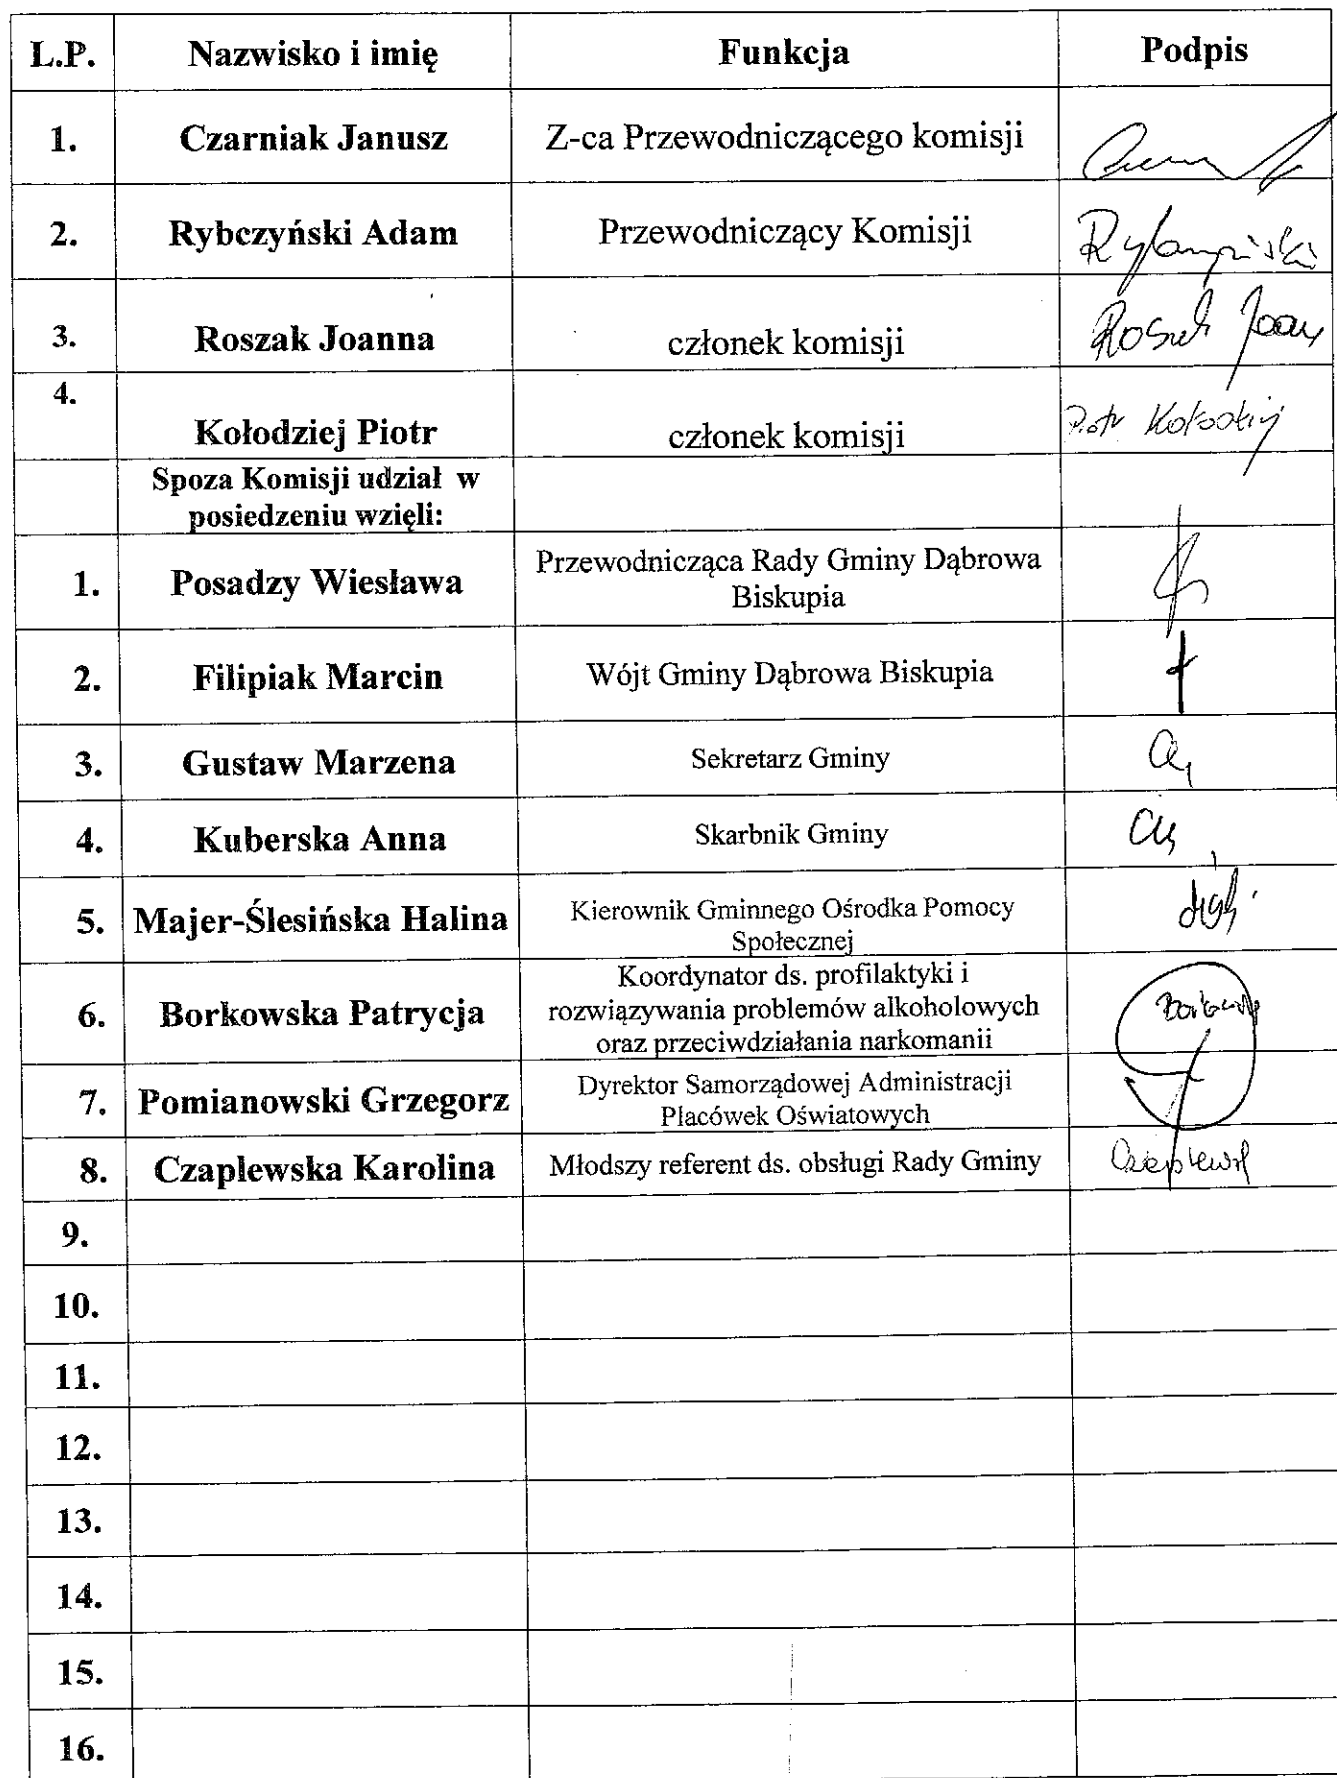 L.P. Nazwisko i imię Funkcja Podpis
1. Czarniak Janusz Z-ca Przewodniczącego komisji
2. Rybczyński Adam Przewodniczący Komisji Rybczyński
3. Roszak Joanna członek komisji
4.
Kołodziej Piotr członek komisji Piotr Kołodziej
Spoza Komisji udział w
posiedzeniu wzięli:
1. Posadzy Wiesława Przewodnicząca Rady Gminy Dąbrowa
Biskupia
2. Filipiak Marcin Wójt Gminy Dąbrowa Biskupia
3. Gustaw Marzena Sekretarz Gminy
4. Kuberska Anna Skarbnik Gminy
5. Majer-Ślesińska Halina Kierownik Gminnego Ośrodka Pomocy
Społecznej
6. Borkowska Patrycja Koordynator ds. profilaktyki i
rozwiązywania problemów alkoholowych
oraz przeciwdziałania narkomanii
7. Pomianowski Grzegorz Dyrektor Samorządowej Administracji
Placówek Oświatowych
8. Czaplewska Karolina Młodszy referent ds. obsługi Rady Gminy
9.
10.
11.
12.
13.
14.
15.
16.